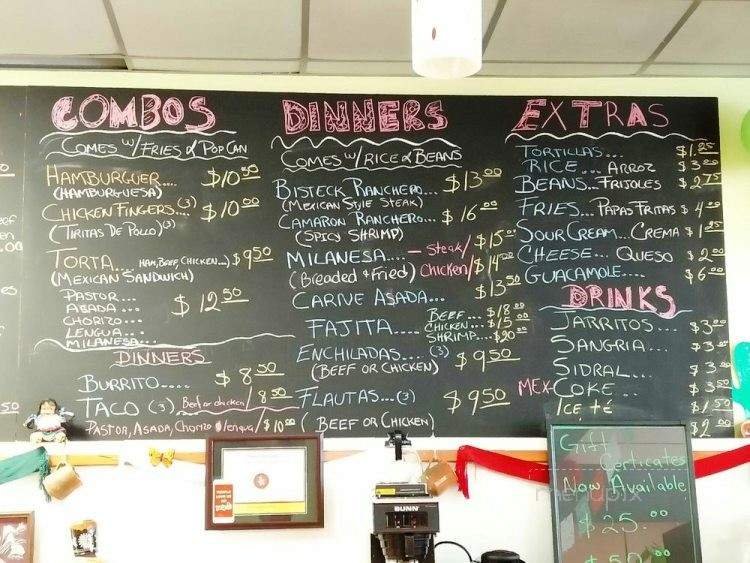 COMBOS
COMES W/ FRIES & POP CAN
HAMBURGUER.... $10.50
(HAMBURGUESA)
CHICKEN FINGERS....(3) $10.00
(TIRITAS DE POLLO)(3)
TORTA... HAM, BEEF, CHICKEN...) $9.50
(MEXICAN SANDWICH)
PASTOR...
ASADA...
CHORIZO... $12.50
LENGUA...
MILANESA...
DINNERS
BURRITO.... $8.50
TACO (3) Beef or chicken / 8.50
PASTOR, ASADA, Chorizo /lengua/ $10.00
DINNERS
COMES W/ RICE & BEANS
BISTECK RANCHERO... $13.00
(MEXICAN STYLE STEAK)
CAMARON RANCHERO... $16.00
(SPICY SHRIMP)
MILANESA.... - Steak/ $15.00
(Breaded & Fried) Chicken/ $14.00
CARNE ASADA... $13.50
FAJITA.... BEEF... $18.00
CHICKEN... $15.00
SHRIMP... $20.00
ENCHILADAS....(3) $9.50
(BEEF OR CHICKEN)
FLAUTAS...(3) $9.50
(BEEF OR CHICKEN)
EXTRAS
TORTILLAS... $1.25
RICE... ARROZ $3.00
BEANS... FRIJOLES $2.75
FRIES... PAPAS FRITAS $4.00
SOUR CREAM... CREMA $1.25
CHEESE... QUESO $2.00
GUACAMOLE.... $6.00
DRINKS
JARRITOS... $3.00
SANGRIA... $3.
SIDRAL... $3.
MEX-COKE... $3.50
ICE té $1.50
$2.00
Gift
Certicates
Now Available
$25.00
$50.00
BUNN
menupix